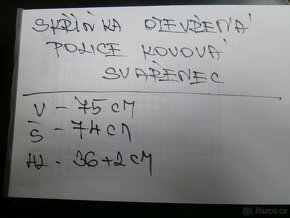 SKŘÍŇKA OTEVŘENÁ
POLICE KOVOVÁ
SVAŘENEC
V - 75 CM
Š - 74 CM
HL - 36+2 CM
Bazos.cz